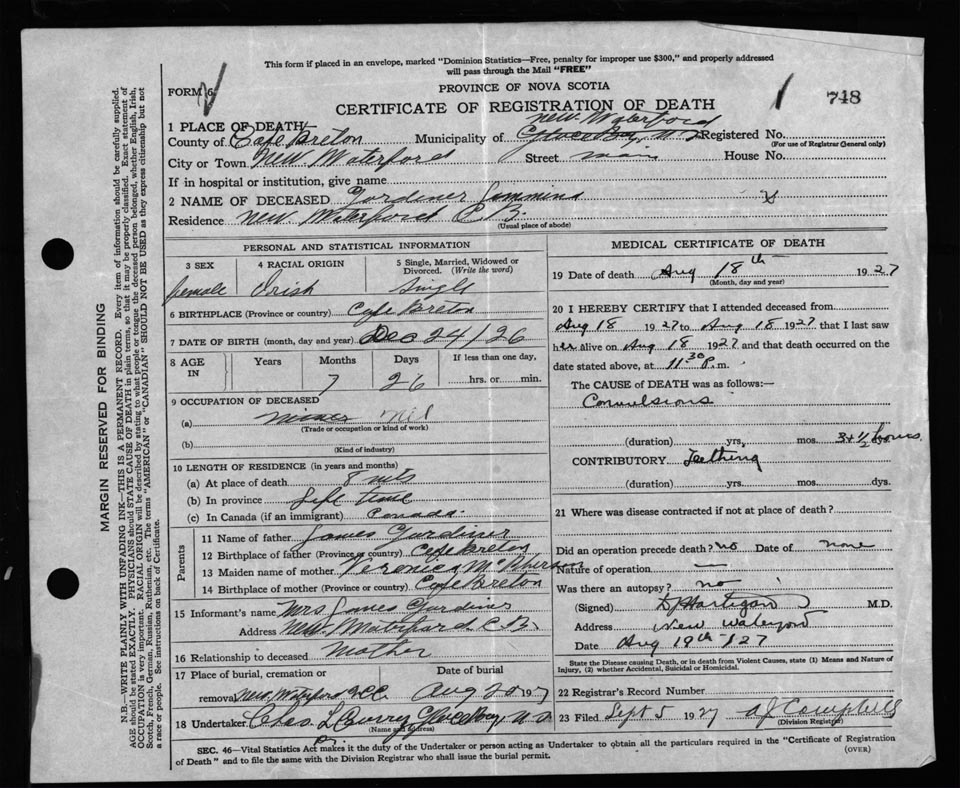 This form if placed in an envelope, marked "Dominion Statistics—Free, penalty for improper use $300," and properly addressed
will pass through the Mail "FREE"
FORM 6
PROVINCE OF NOVA SCOTIA
CERTIFICATE OF REGISTRATION OF DEATH
748
1 PLACE OF DEATH
New Waterford
County of Cape Breton Municipality of Glace Bay, N.S. Registered No.
(For use of Registrar General only)
City or Town New Waterford Street main House No.
If in hospital or institution, give name
2 NAME OF DECEASED Gardiner
Residence New Waterford C.B.
(Usual place of abode)
PERSONAL AND STATISTICAL INFORMATION
3 SEX 4 RACIAL ORIGIN 5 Single, Married, Widowed or Divorced. (Write the word)
female Irish Single
6 BIRTHPLACE (Province or country) Cape Breton
7 DATE OF BIRTH (month, day and year) Dec 24/26
8 AGE IN Years Months Days If less than one day,
7 26 hrs. or min.
9 OCCUPATION OF DECEASED
(a) Nil
(Trade or occupation or kind of work)
(b)
(Kind of industry)
10 LENGTH OF RESIDENCE (in years and months)
(a) At place of death 8 mts
(b) In province life time
(c) In Canada (if an immigrant) Canada
Parents
11 Name of father James Gardiner
12 Birthplace of father (Province or country) Cape Breton
13 Maiden name of mother Veronica McPherson
14 Birthplace of mother (Province or country) Cape Breton
15 Informant's name Mrs James Gardiner
Address New Waterford C.B.
16 Relationship to deceased Mother
17 Place of burial, cremation or Date of burial
removal New Waterford Aug 20 1927
18 Undertaker Chas. L Curry Glace Bay N.S.
(Name and address)
MEDICAL CERTIFICATE OF DEATH
19 Date of death Aug 18th 1927
(Month, day and year)
20 I HEREBY CERTIFY that I attended deceased from
Aug 18 1927 to Aug 18 1927 that I last saw
her alive on Aug 18 1927 and that death occurred on
date stated above, at 11 30 P. m.
The CAUSE of DEATH was as follows:—
Convulsions
(duration) yrs. mos. 3 + 1/2 hours
CONTRIBUTORY Teething
(duration) yrs. mos. dys.
21 Where was disease contracted if not at place of death?
Did an operation precede death? no Date of none
Nature of operation —
Was there an autopsy? no
(Signed) D J Hartigan M.D.
Address New Waterford
Date Aug 19th /27
State the Disease causing Death, or in death from Violent Causes, state (1) Means and Nature of
Injury, (2) whether Accidental, Suicidal or Homicidal.
22 Registrar's Record Number
23 Filed Sept 5 1927 A J Campbell
(Division Registrar)
SEC. 46—Vital Statistics Act makes it the duty of the Undertaker or person acting as Undertaker to obtain all the particulars required in the "Certificate of Registration
of Death" and to file the same with the Division Registrar who shall issue the burial permit. (OVER)
MARGIN RESERVED FOR BINDING
N.B.—WRITE PLAINLY WITH UNFADING INK—THIS IS A PERMANENT RECORD. Every item of information should be carefully supplied.
AGE should be stated EXACTLY. PHYSICIANS should STATE CAUSE OF DEATH in plain terms, so that it may be properly classified. Exact statement of
OCCUPATION is very important. RACIAL ORIGIN will be described by stating to what people or tongue the deceased person belonged, whether English, Irish,
Scotch, French, German, Russian, Ruthenian, etc. The terms "AMERICAN" or "CANADIAN" SHOULD NOT BE USED as they express citizenship but not
a race or people. See instructions on back of Certificate.